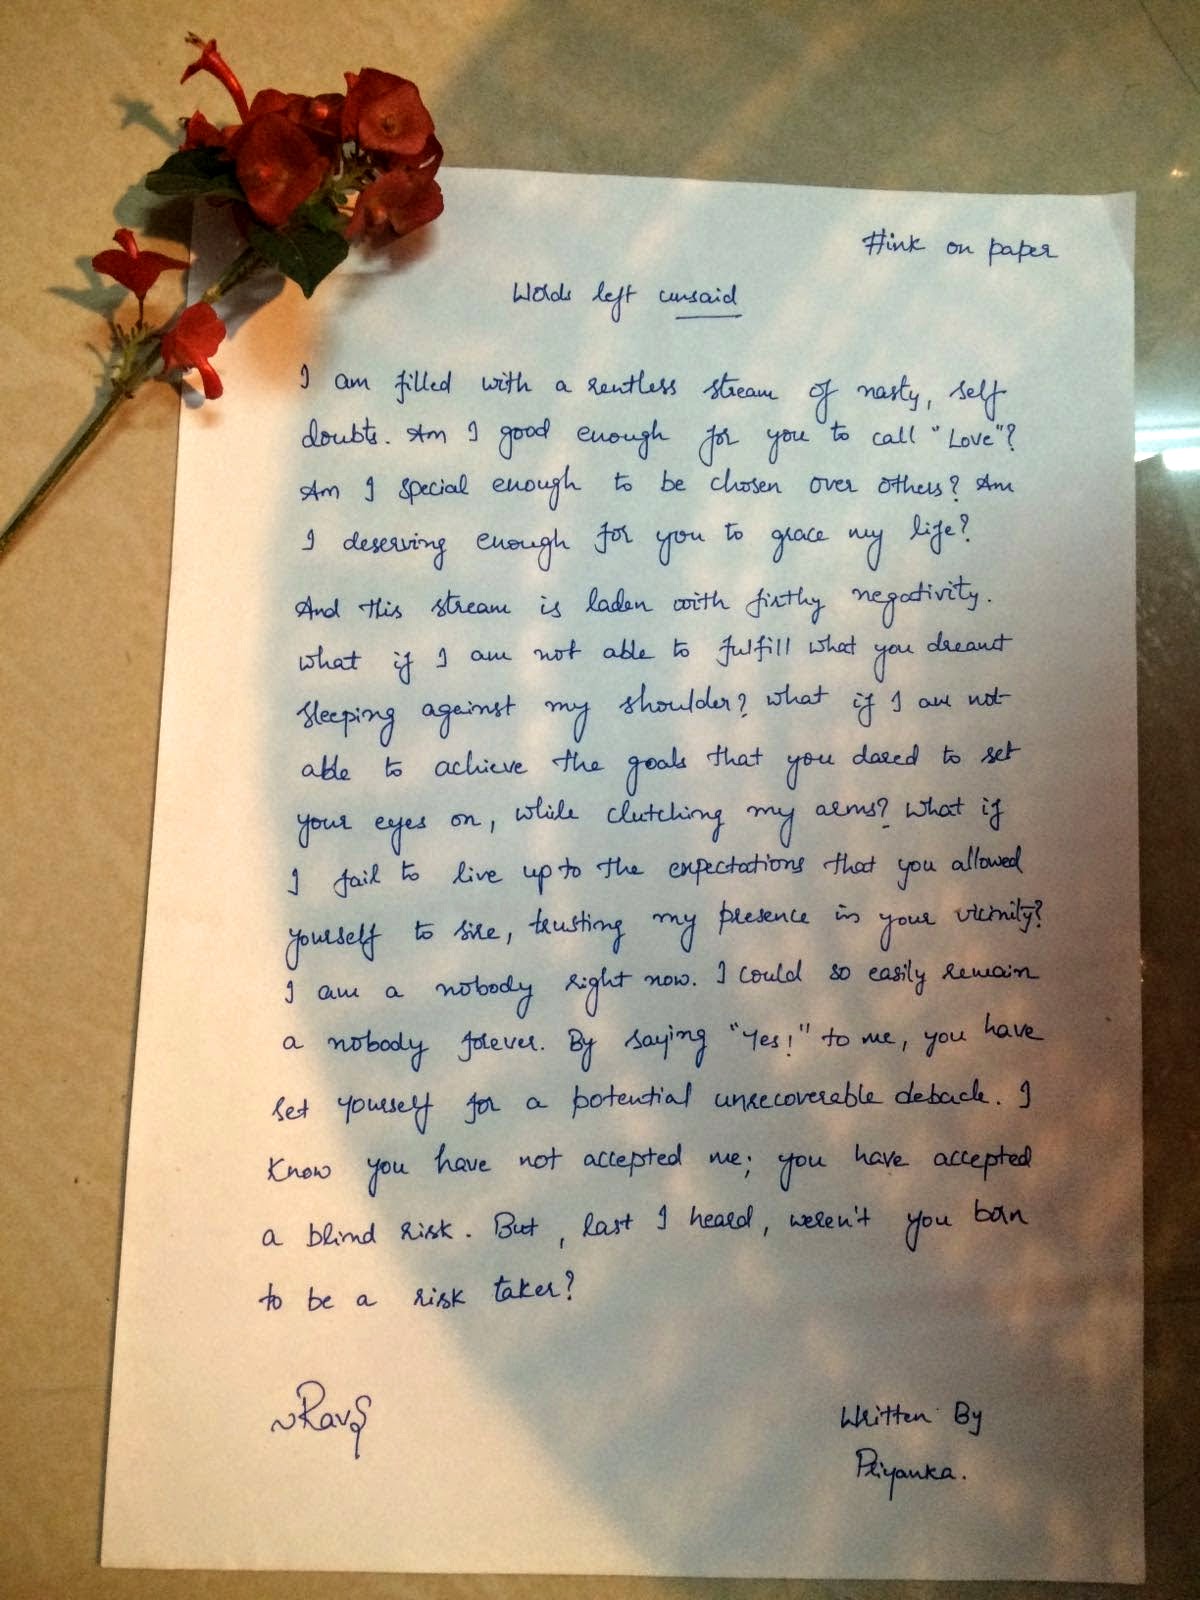 #ink on paper
Words left unsaid
I am filled with a rentless stream of nasty, self
doubts. Am I good enough for you to call "Love"?
Am I special enough to be chosen over others? Am
I deserving enough for you to grace my life?
And this stream is laden with firthy negativity.
What if I am not able to fulfill what you dreamt
sleeping against my shoulder? What if I am not
able to achieve the goals that you dared to set
your eyes on, while clutching my arms? What if
I fail to live up to the expectations that you allowed
yourself to sire, trusting my presence in your vicinity?
I am a nobody right now. I could so easily remain
a nobody forever. By saying "Yes!" to me, you have
set yourself for a potential unrecoverable debacle. I
know you have not accepted me; you have accepted
a blind risk. But, last I heard, weren't you born
to be a risk taker?
~RavS
Written By
Priyanka.